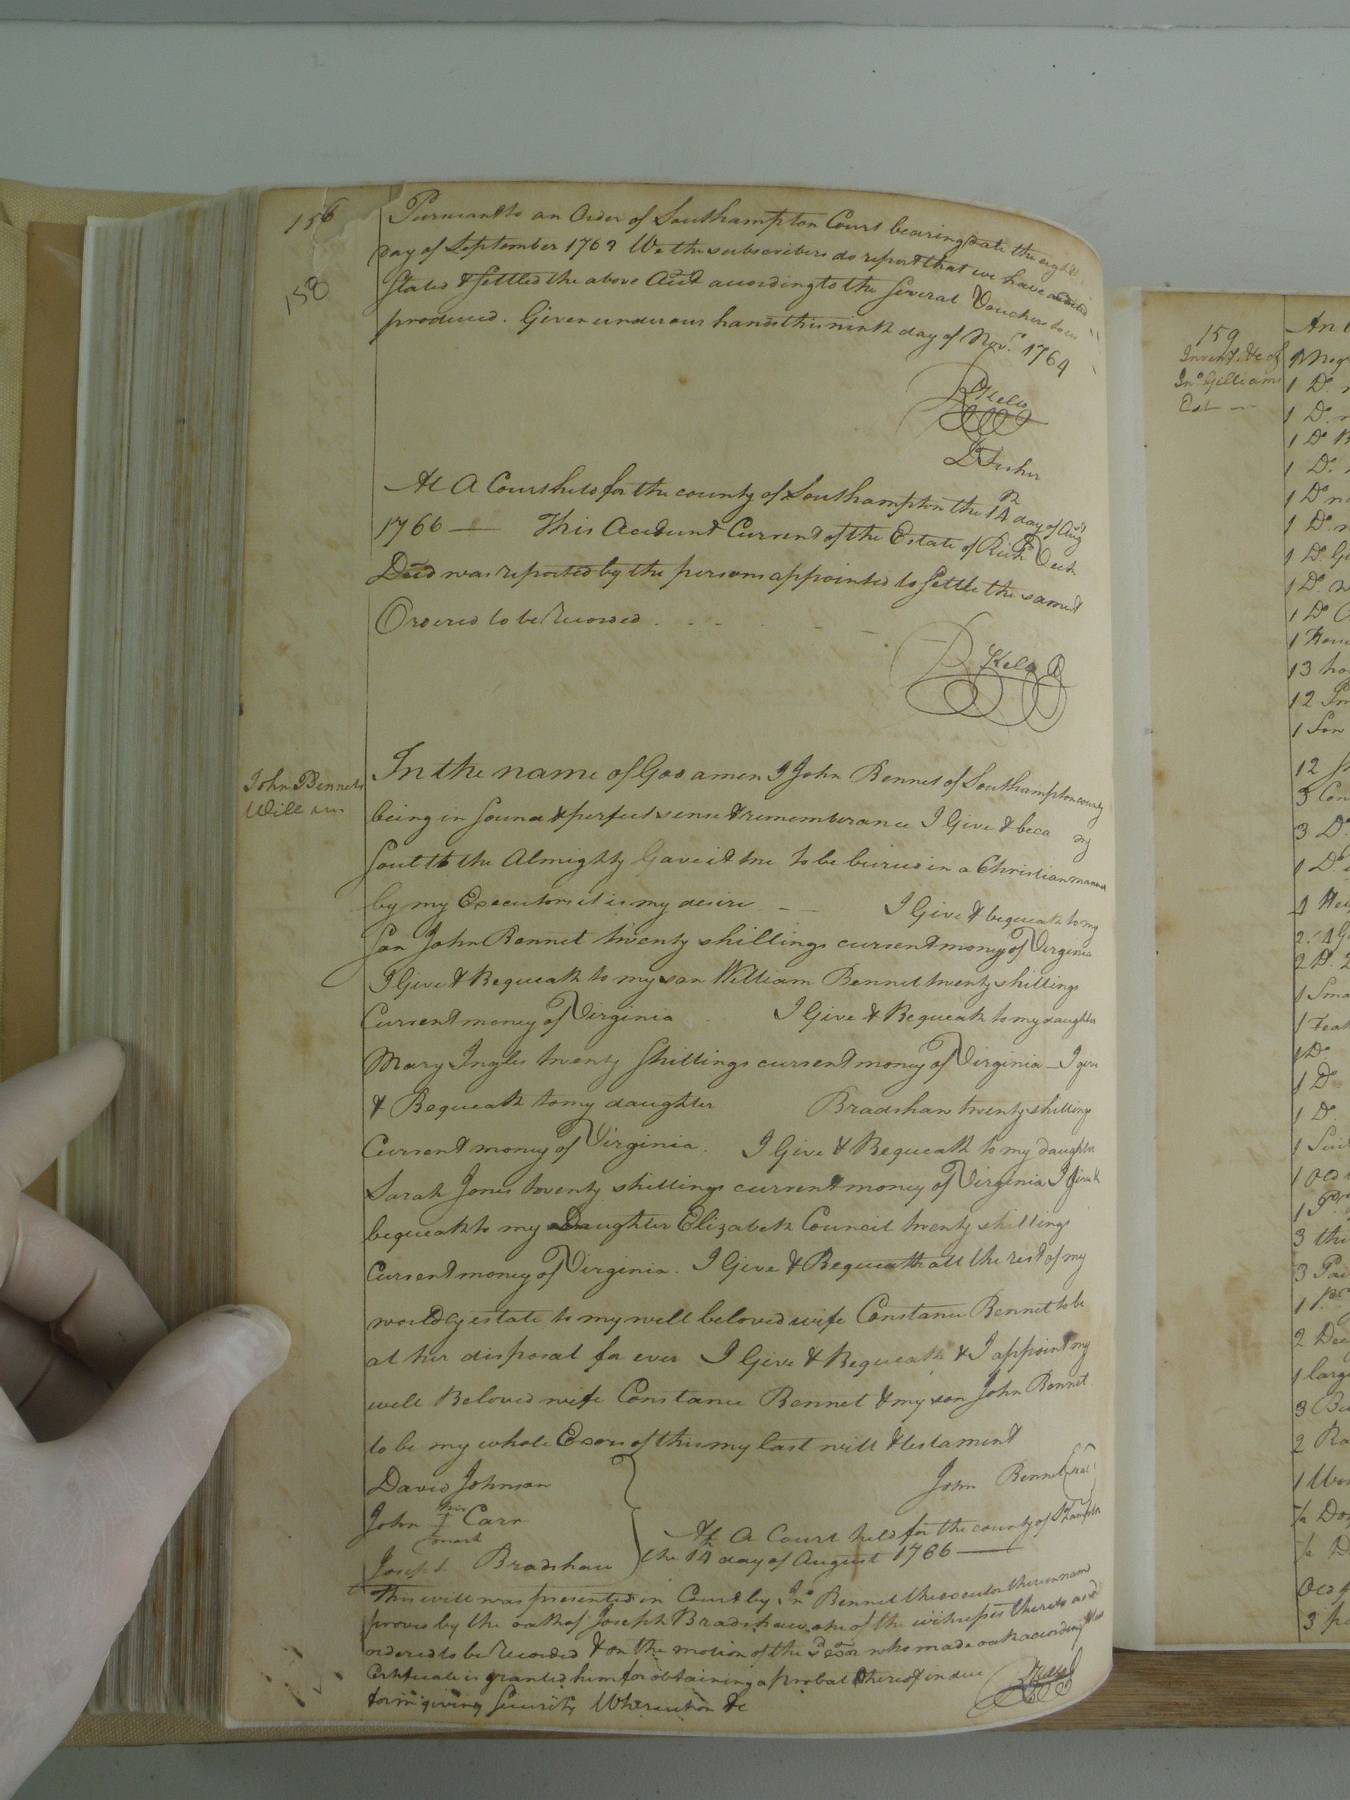 156
158
Pursuant to an Order of Southampton Court bearing date the eight
day of September 1763 We the subscribers do report that we have audited
Stated & settled the above Acct according to the several Vouchers to us
produced. Given under our hands this ninth day of Novr. 1764
R Kello
At A Court held for the county of Southampton the 14th day of Augst
1766 — This Account Current of the Estate of Richd
Decd was reported by the persons appointed to settle the same &
Ordered to be Recorded
R Kello
John Bennets
Will
In the name of God amen I John Bennet of Southampton county
being in sound & perfect sense & remembrance I Give & beca my
soul to the Almighty Gave it me to be buried in a Christian manner
by my Executors it is my desire — I Give & bequeath to my
Son John Bennet twenty shillings current money of Virginia
I Give & Bequeath to my son William Bennet twenty shillings
Current money of Virginia I Give & Bequeath to my daughter
Mary Ingles twenty shillings current money of Virginia — I give
& Bequeath to my daughter Bradshaw twenty shillings
Current money of Virginia. I Give & Bequeath to my daughter
Sarah Jones twenty shillings current money of Virginia I Give &
bequeath to my Daughter Elizabeth Council twenty shillings
Current money of Virginia. I Give & Bequeath all the rest of my
worldly estate to my well beloved wife Constance Bennet to be
at her disposal for ever I Give & Bequeath & I appoint my
well Beloved wife Constance Bennet & my son John Bennet
to be my whole Exors of this my last will & testament
David Johnson
John Bennet seal
John his I mark Carr
Joseph Bradshaw
At A Court held for the county of Shampton
the 14th day of August 1766 —
This will was presented in Court by Jno Bennet the executor therein named
proved by the oath of Joseph Bradshaw one of the witnesses thereto and
ordered to be recorded & on the motion of the sd Exor who made oath according to law
Certificate is granted him for obtaining a probat thereof in due
form giving Security Whereupon &c
R Kello
159
Invent. &c of
Jno Gilliams
Est —
1 Do
1 Do
1 Do
1 Do
1 Do
1 Do
1 Do
1 Do
1 Do
13 ho
12
12
3 Do
1 Do
1 Do
1 Do
1 Do
1 Old
3
3
2
1 large
3
2
Old
3